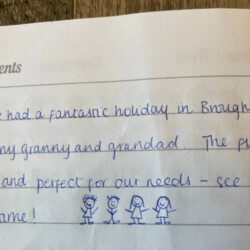 ents
e had a fantastic holiday in Brough
my granny and grandad. The
and perfect for our needs - see
ame!